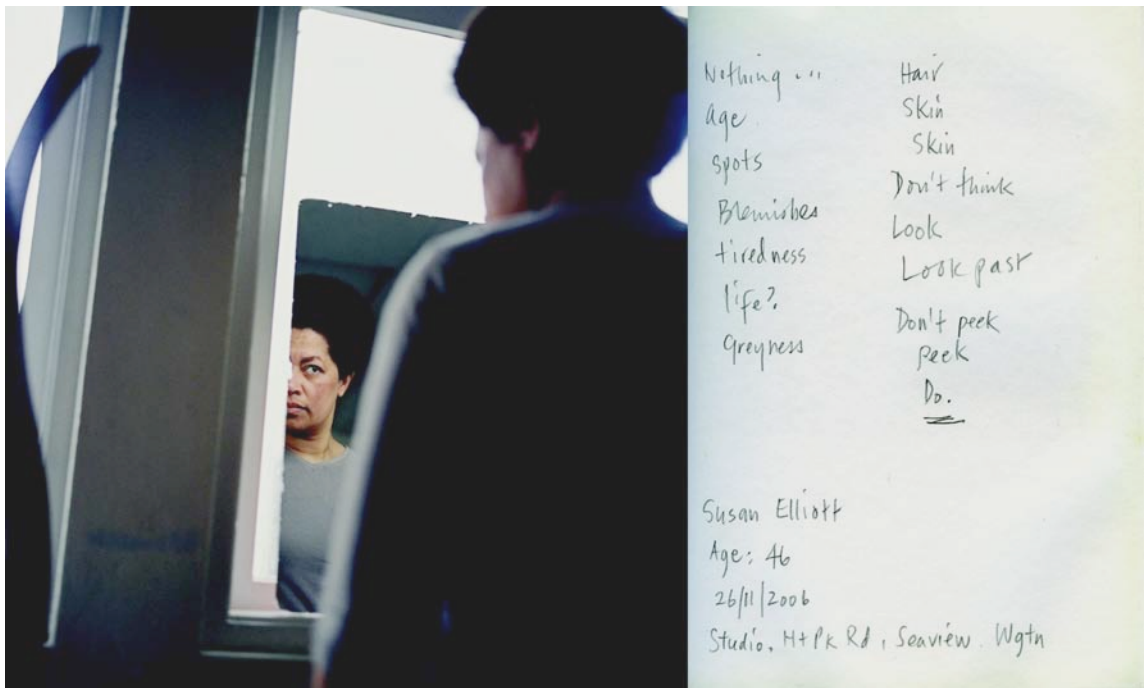 Nothing ...
age.
spots
Blemishes
tiredness
life?
greyness
Hair
Skin
Skin
Don't think
Look
Look past
Don't peek
peek
Do.
Susan Elliott
Age: 46
26/11/2006
Studio. Ht Pk Rd, Seaview. Wgtn